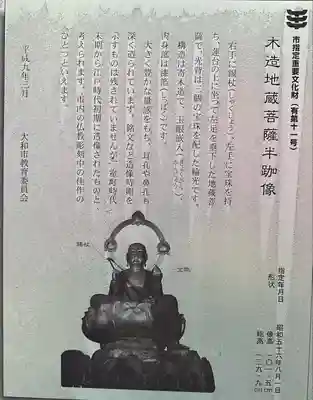 市指定重要文化財（有第十一号）
木造地蔵菩薩半跏像
指定年月日　昭和五十六年八月一日
形状　像高　一〇一・五㎝
総高　一二六・九㎝
右手に錫杖（しゃくじょう）、左手に宝珠を持
ち、蓮台の上に坐って左足を垂下した地蔵菩
薩で、光背は三個の宝珠を配した輪光です。
構造は寄木造で、玉眼嵌入
肉身部は漆箔（しっぱく）です。
大きく豊かな量感をもち、耳孔や鼻孔も
深く造られています。銘文など造像時期を
示すものは残されていませんが、室町時代
末期から江戸時代初期に造像されたものと
考えられます。市内の仏教彫刻中の佳作の
ひとつといえます。
平成九年三月
大和市教育委員会
錫杖
宝珠